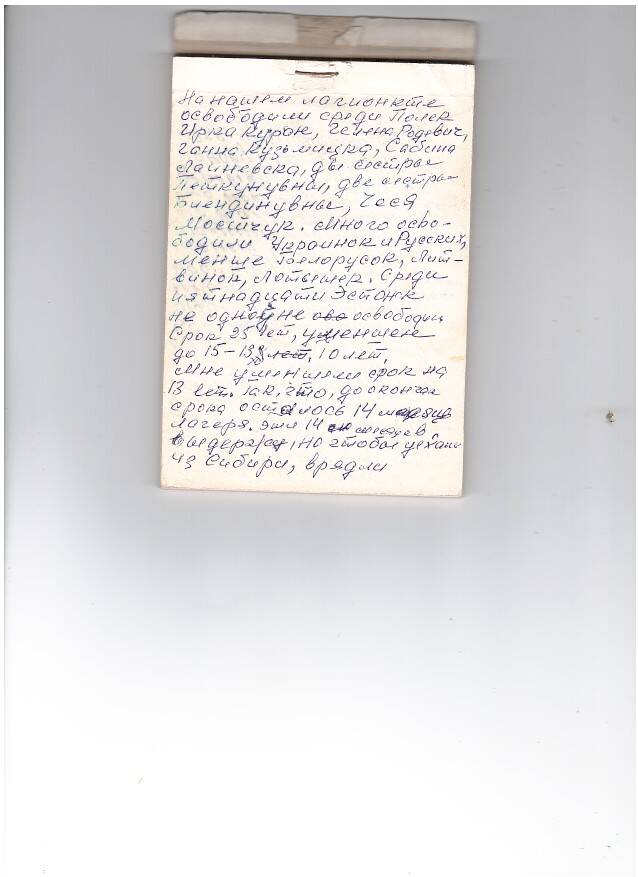 На нашем лагпонкте
освободили среди Полек
Ирка Куран, Гелена Родевич,
Ганна Кузьмицка, Сабина
Лайневска, две сестры
Петкунувны, две сестры
Биендинувны, Чеся
Мостчук. Много осво-
бодили Украинок и Русских,
менше Белорусок, Лит-
винок, Лотышек. Среди
пятнадцати Эстонк
не одной не освободили
Срок 25 лет, уменшене
до 15-13 лет, 10 лет,
мне уменшили срок на
13 лет. Так, что, до окончан
срока осталось 14 месяцев
лагеря. эти 14 месяцев
выдержу, но чтобы уехали
из Сибири, врядли